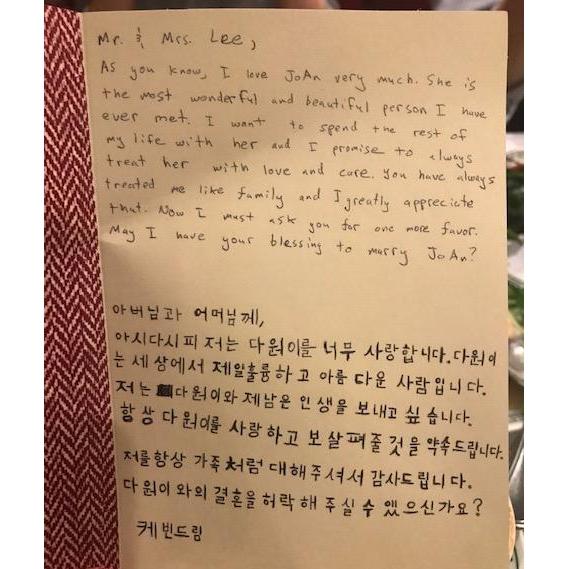 Mr. & Mrs. Lee,
As you know, I love JoAn very much. She is
the most wonderful and beautiful person I have
ever met. I want to spend the rest of
my life with her and I promise to always
treat her with love and care. You have always
treated me like family and I greatly appreciate
that. Now I must ask you for one more favor.
May I have your blessing to marry JoAn?
아버님과 어머님께,
아시다시피 저는 다원이를 너무 사랑합니다. 다원이
는 세상에서 제일훌륭하고 아름다운 사람입니다.
저는 다원이와 제남은 인생을 보내고 싶습니다.
항상 다원이를 사랑하고 보살펴줄 것을 약속드립니다.
저를항상 가족처럼 대해주셔서 감사드립니다.
다원이와의 결혼을 허락해 주실 수 있으신가요?
케빈드림